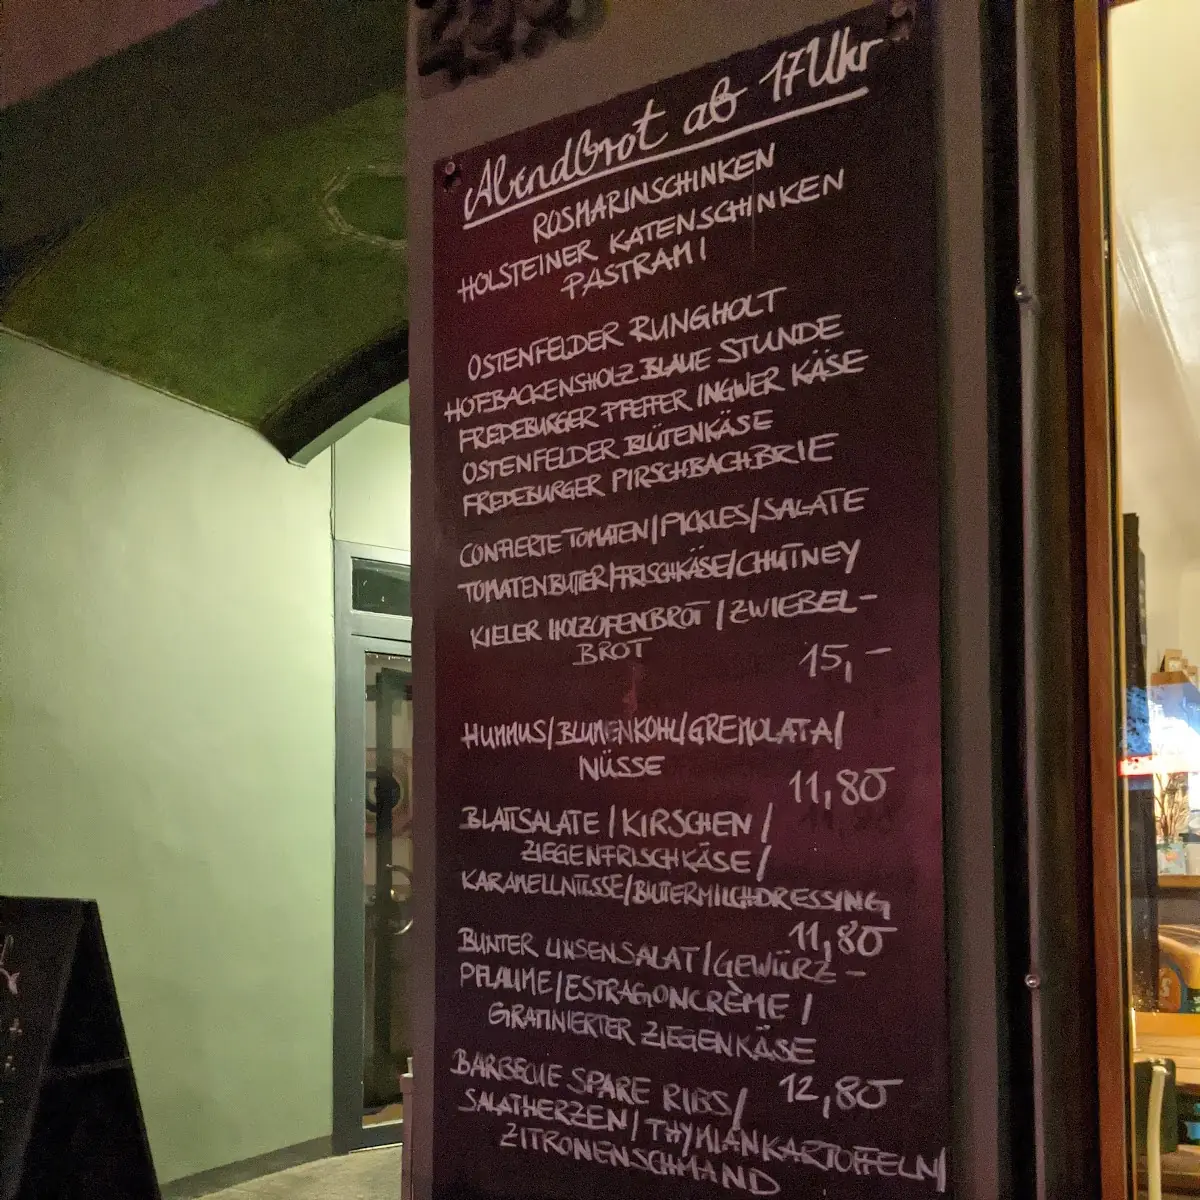 Abendbrot ab 17Uhr
ROSMARINSCHINKEN
HOLSTEINER KATENSCHINKEN
PASTRAMI
OSTENFELDER RUNGHOLT
HOFBACKENSHOLZ BLAUE STUNDE
FREDEBURGER PFEFFER INGWER KÄSE
OSTENFELDER BLÜTENKÄSE
FREDEBURGER PIRSCHBACHBRIE
CONFIERTE TOMATEN/PICKLES/SALATE
TOMATENBUTTER/FRISCHKÄSE/CHUTNEY
KIELER HOLZOFENBROT/ZWIEBEL-
BROT
15,-
HUMMUS/BLUMENKOHL/GREMOLATA/
NÜSSE
11,80
BLATTSALATE/KIRSCHEN/
ZIEGENFRISCHKÄSE/
KARAMELLNÜSSE/BUTTERMILCHDRESSING
11,80
BUNTER LINSENSALAT/GEWÜRZ-
PFLAUME/ESTRAGONCRÈME/
GRATINIERTER ZIEGENKÄSE
12,80
BARBECUE SPARE RIBS/
SALATHERZEN/THYMIANKARTOFFELN/
ZITRONENSCHMAND